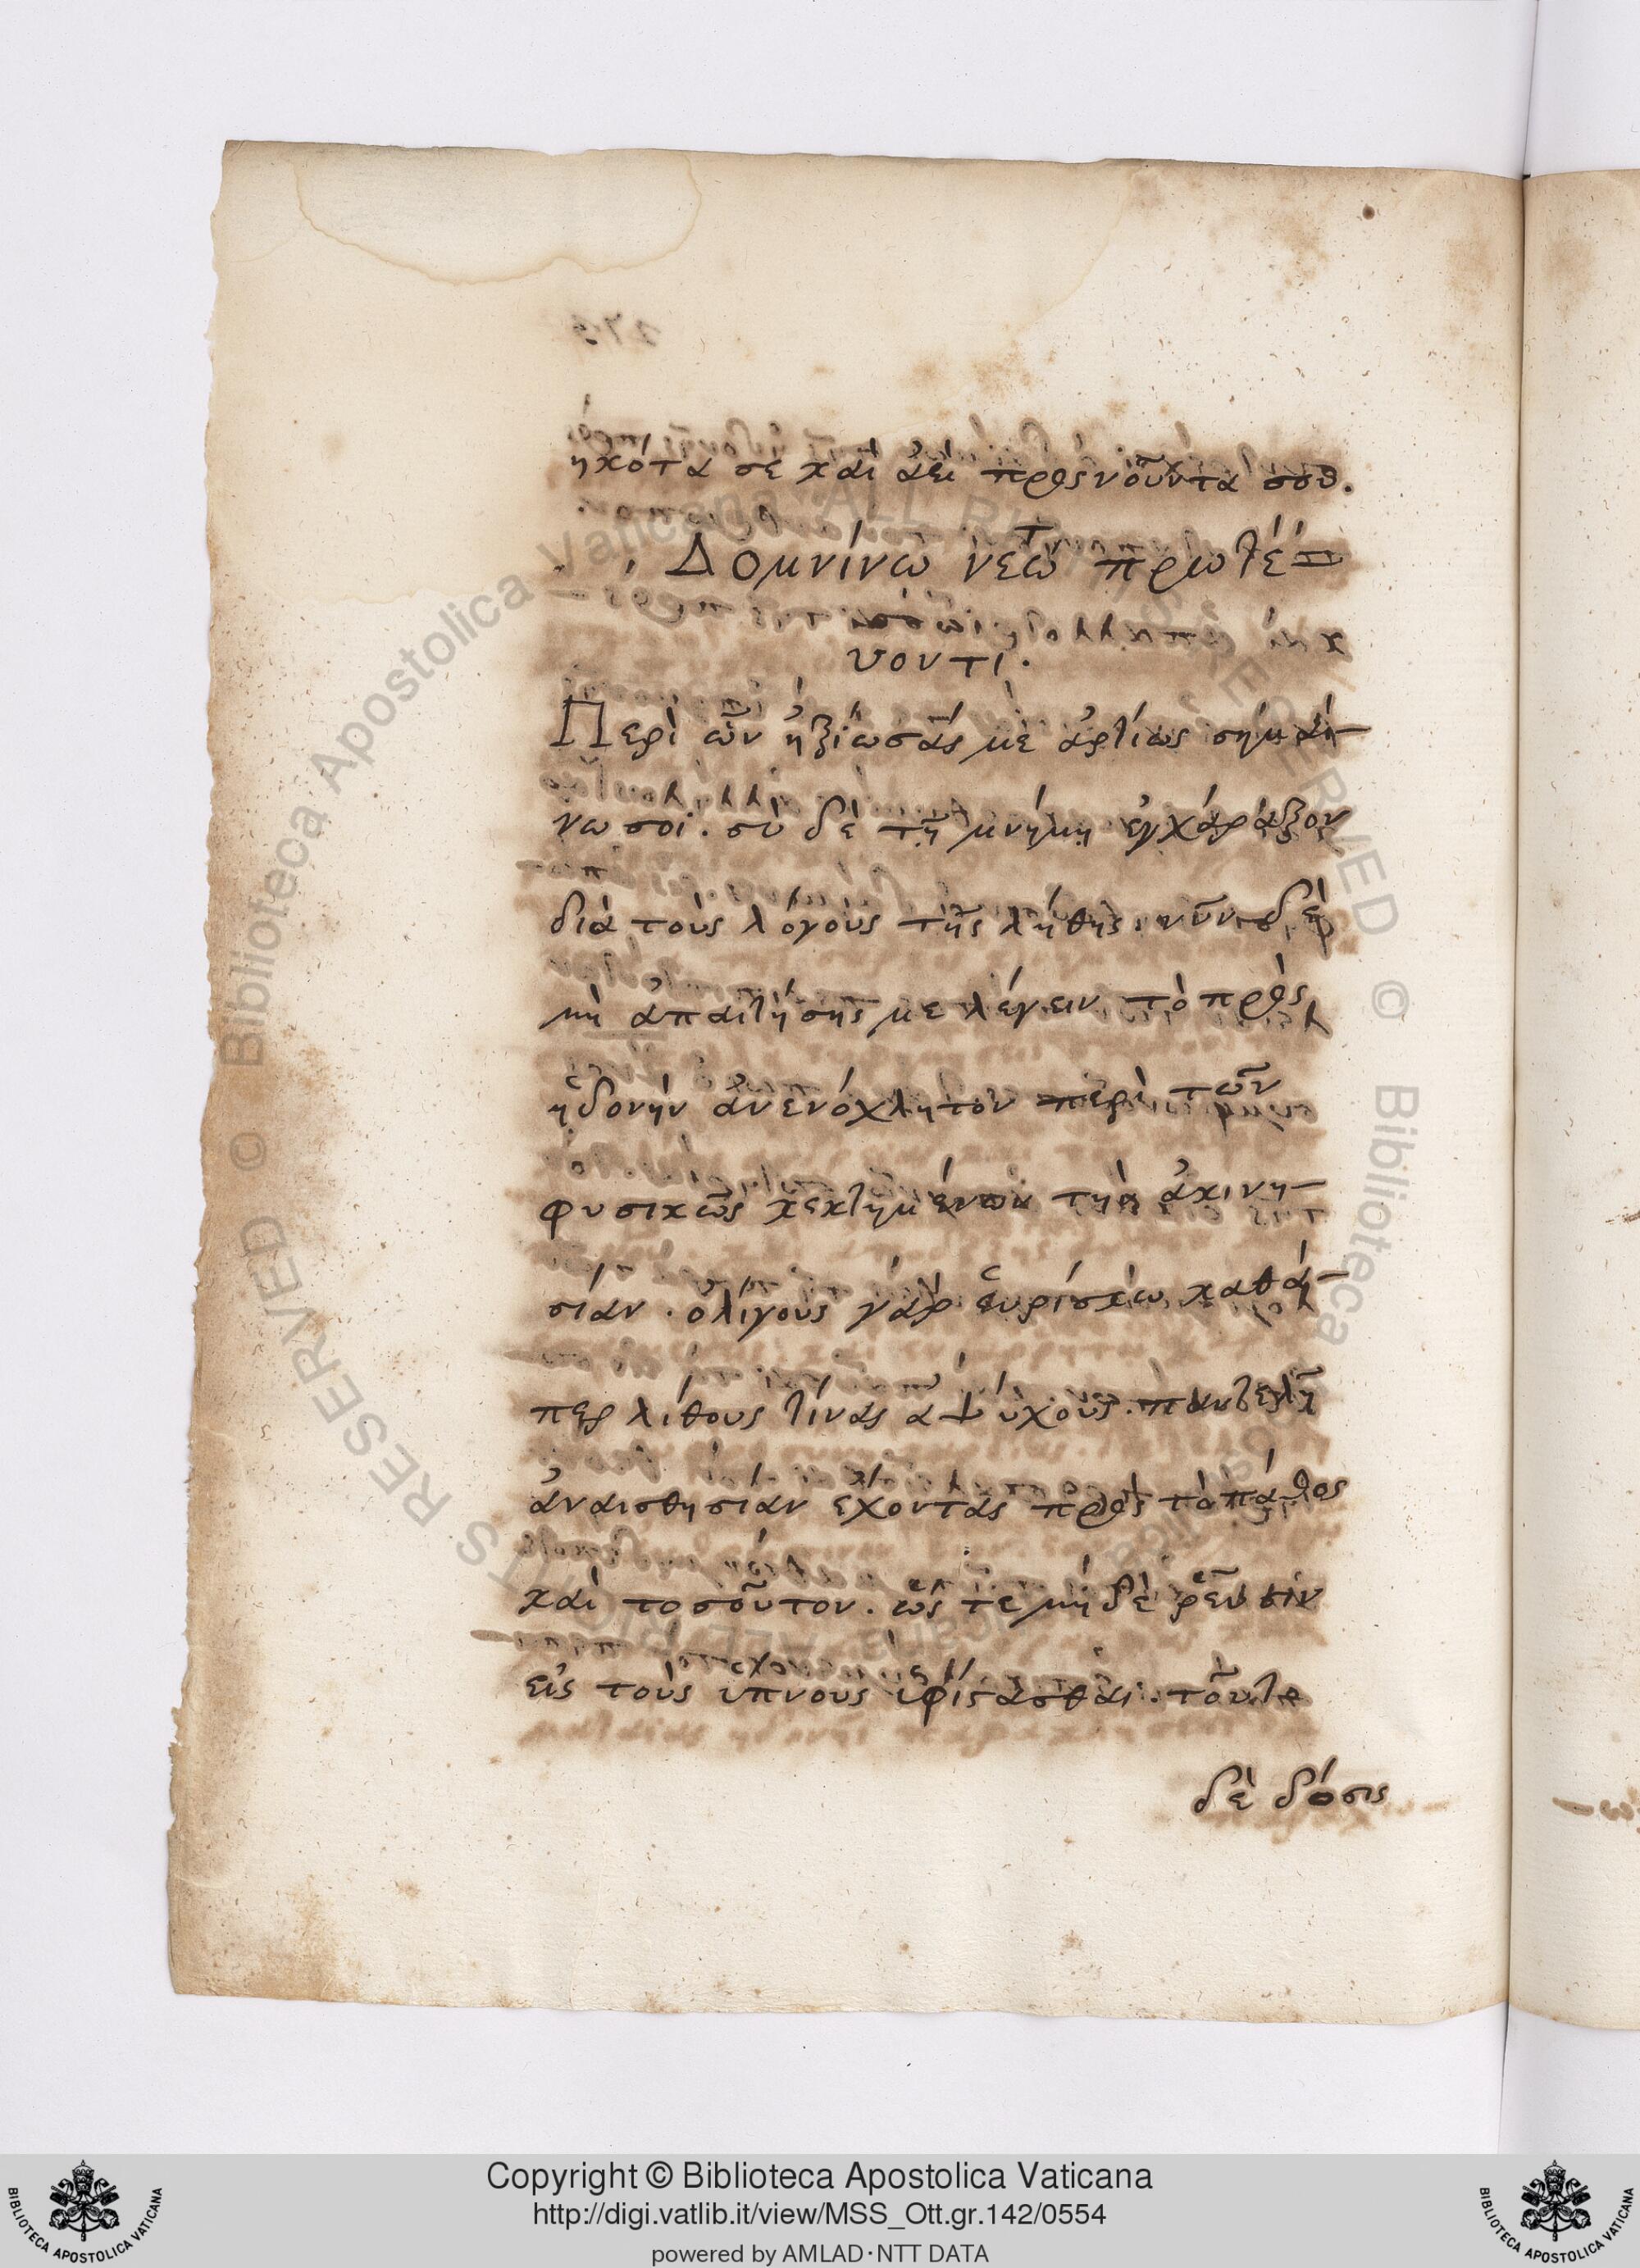 ηκότα σε καὶ ἀεὶ προςνοῦντα σου.
Δομνίνω νεωτ πρωτέ=
υοντι.
Περὶ ὧν ἠξίωσάς με ἀρτίως σημαί-
νω σοι. σὺ δὲ τῇ μνήμῃ ἐγχάραξον
διὰ τοὺς λόγους τῆς λήθης. νῦν δὲ
μὴ ἀπαιτήσῃς με λέγειν τὸ πρὸς
ἡδονὴν ἀνενόχλητον περὶ τῶν
φυσικῶς κεκτημένων τὴν ἀκινη-
σίαν. ὀλίγους γὰρ εὑρίσκω καθά-
περ λίθους τινὰς ἀψύχους. παντελῆ
ἀναισθησίαν ἔχοντας πρὸς τὸ πάθος
καὶ τοσοῦτον. ὥς τε μὴ δὲ ῥεῦσιν
εἰς τοὺς ὕπνους ὑφίστασθαι. τοῦτο
δὲ δόσις
Copyright © Biblioteca Apostolica Vaticana
http://digi.vatlib.it/view/MSS_Ott.gr.142/0554
powered by AMLAD·NTT DATA
BIBLIOTECA APOSTOLICA VATICANA
BIBLIOTECA APOSTOLICA VATICANA